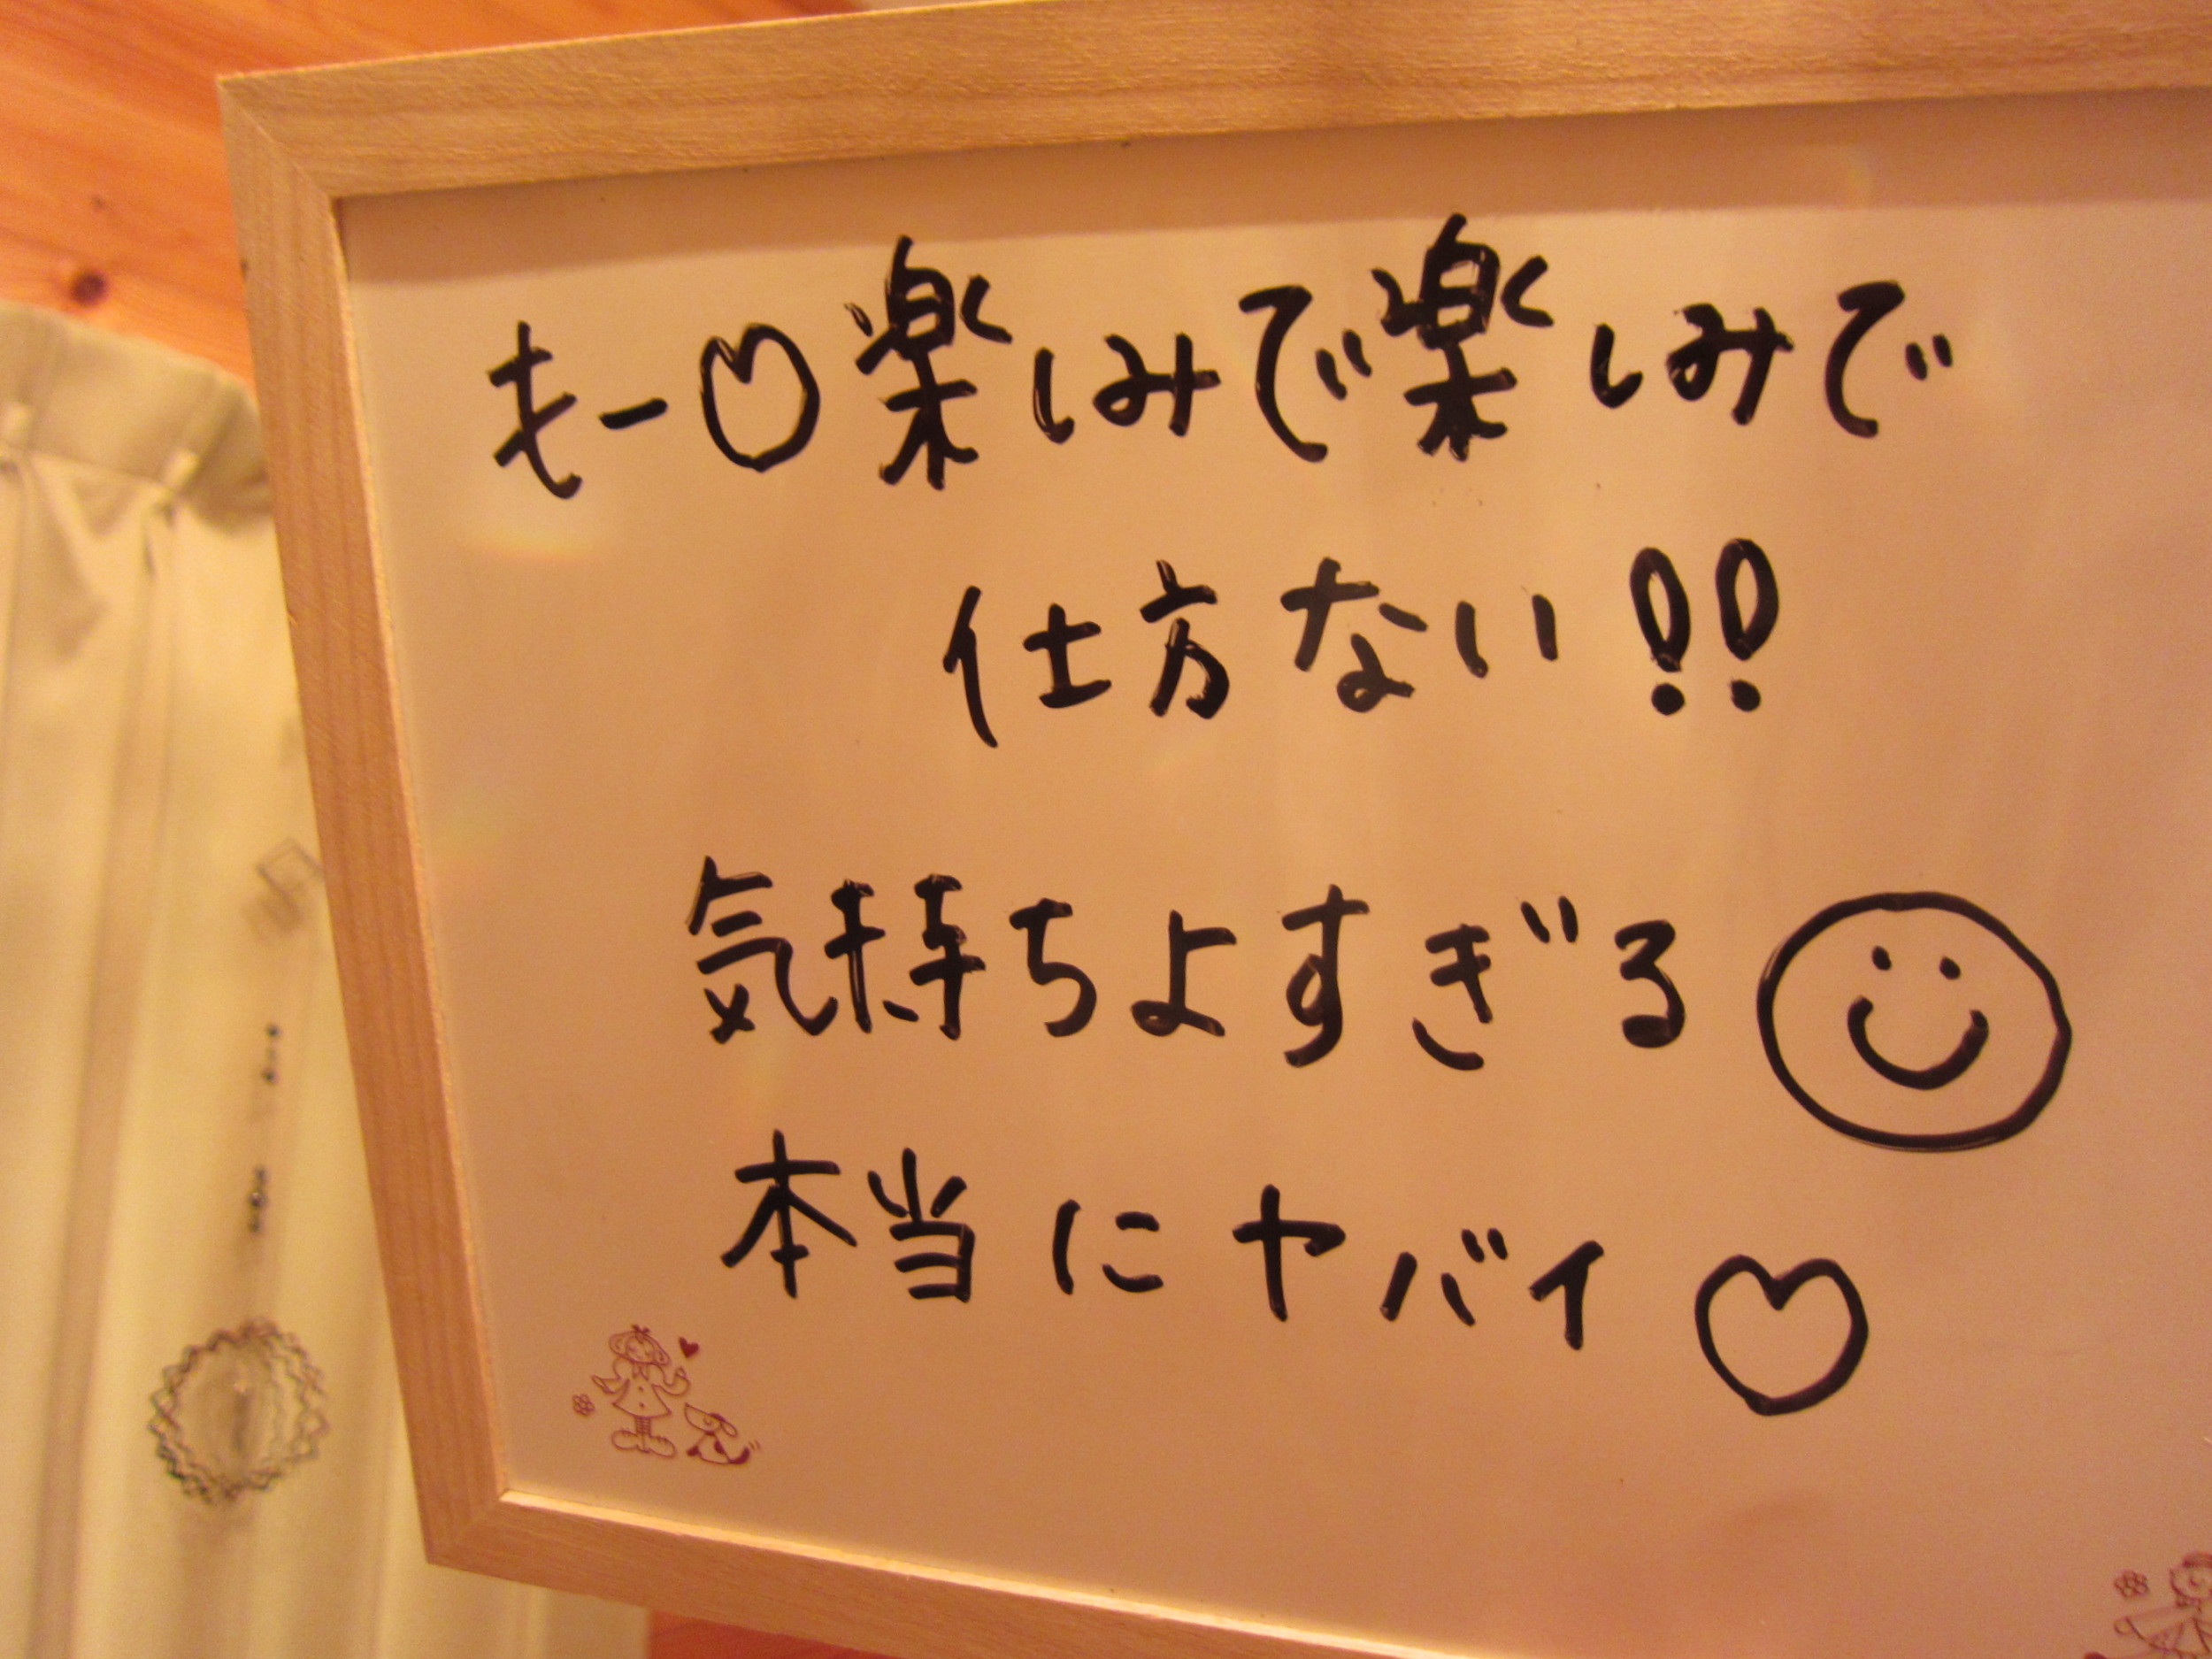 もー♡楽しみで楽しみで
仕方ない!!
気持ちよすぎる☺
本当にヤバイ♡